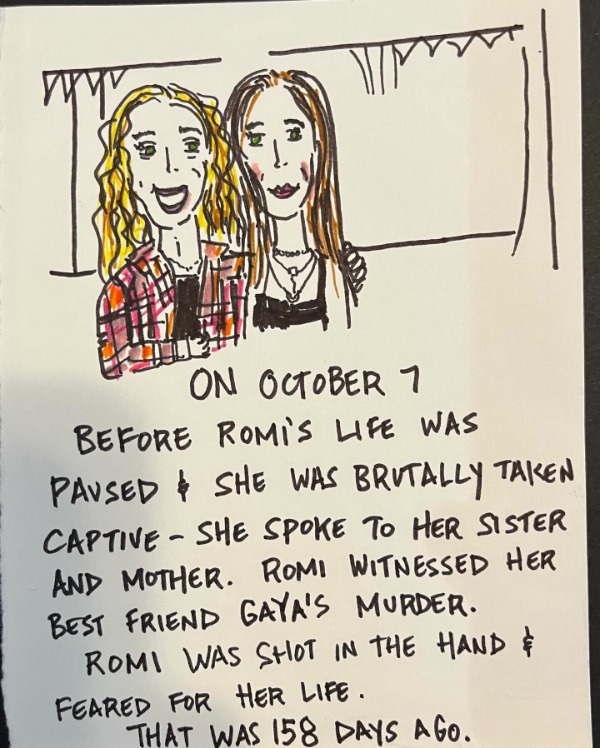 ON OCTOBER 7
BEFORE ROMI'S LIFE WAS
PAUSED & SHE WAS BRUTALLY TAKEN
CAPTIVE - SHE SPOKE TO HER SISTER
AND MOTHER. ROMI WITNESSED HER
BEST FRIEND GAYA'S MURDER.
ROMI WAS SHOT IN THE HAND &
FEARED FOR HER LIFE.
THAT WAS 158 DAYS AGO.